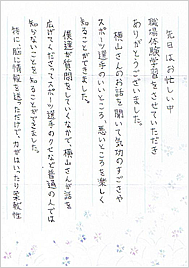 先日はお忙しい中
職場体験学習をさせていただき
ありがとうございました。
横山さんのお話を聞いて気功のすごさや
スポーツ選手のいいところ、悪いところを楽しく
知ることができました。
僕達が質問をしていくなかで横山さんが話を
広げてくださってスポーツ選手のクセなど普通の人では
知らないことを知ることができました。
特に、脳に情報を送っただけで、力がはいったり柔軟性